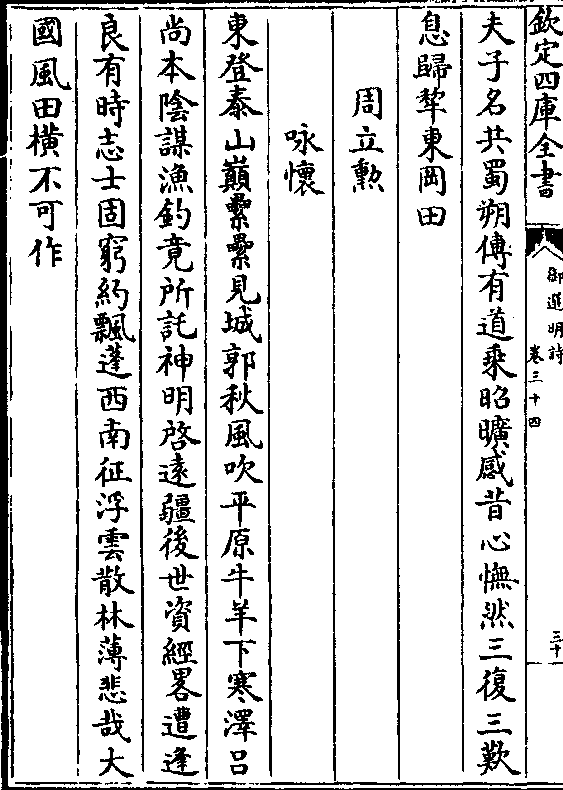 欽定四庫全書
御選明詩
卷三十四
三十
夫子名共蜀朔傅有道乘昭曠感昔心憮然三復三歎
息歸犂東岡田
周立勲
咏懷
東登泰山巔纍纍見城郭秋風吹平原牛羊下寒澤吕
尚本陰謀漁釣竟所託神明啓遠疆後世資經畧遭逢
良有時志士固窮約飄蓬西南征浮雲散林薄悲哉大
國風田横不可作